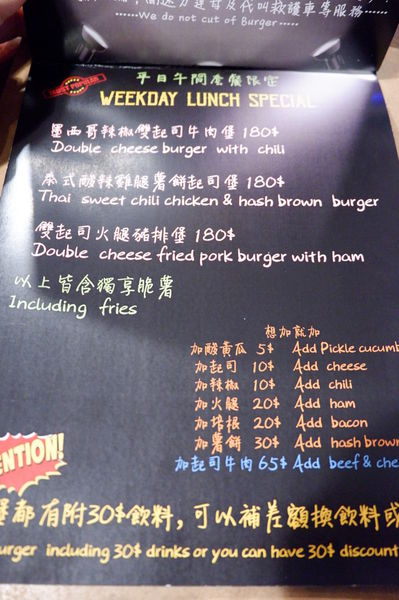 代叫救護車等服務······
······We do not cut of Burger······
MOST POPULAR
平日午間套餐限定
WEEKDAY LUNCH SPECIAL
墨西哥辣椒雙起司牛肉堡 180$
Double cheese burger with chili
泰式酸辣雞腿薯餅起司堡 180$
Thai sweet chili chicken & hash brown burger
雙起司火腿豬排堡 180$
Double cheese fried pork burger with ham
以上皆含獨享脆薯
Including fries
想加就加
加酸黃瓜 5$ Add Pickle cucumb
加起司 10$ Add cheese
加辣椒 10$ Add chili
加火腿 20$ Add ham
加培根 20$ Add bacon
加薯餅 30$ Add hash brown
加起司牛肉 65$ Add beef & che
ENTION!
堡都有附30$飲料，可以補差額換飲料或
urger including 30$ drinks or you can have 30$ discount